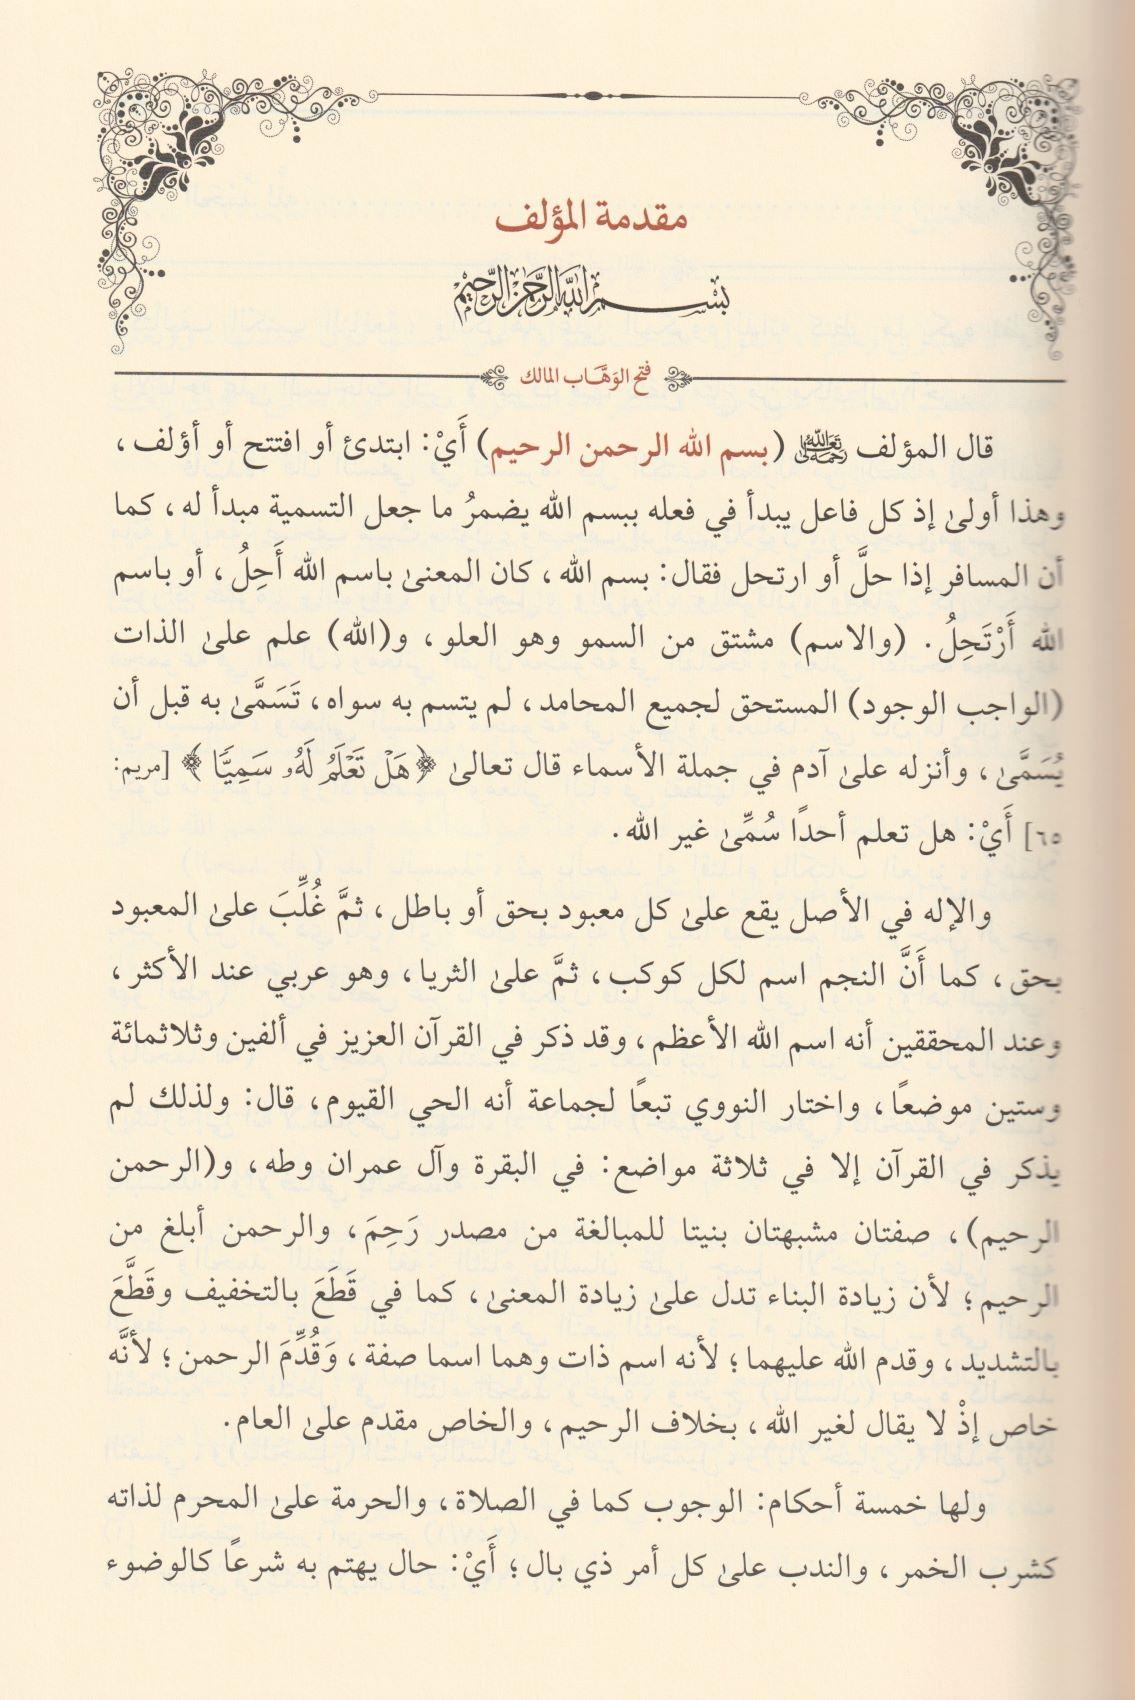 مقدمة المؤلف
بسم الله الرحمن الرحيم
فتح الوَهَّاب المالك
قال المؤلف رحمه الله تعالى (بسم الله الرحمن الرحيم) أَيْ: ابتدئ أو افتتح أو أؤلف،
وهذا أولىٰ إذ كل فاعل يبدأ في فعله ببسم الله يضمرُ ما جعل التسمية مبدأ له، كما
أن المسافر إذا حلَّ أو ارتحل فقال: بسم الله، كان المعنىٰ باسم الله أَحِلُ، أو باسم
الله أَرْتَحِلُ. (والاسم) مشتق من السمو وهو العلو، و(الله) علم علىٰ الذات
(الواجب الوجود) المستحق لجميع المحامد، لم يتسم به سواه، تَسَمَّىٰ به قبل أن
يُسَمَّىٰ، وأنزله علىٰ آدم في جملة الأسماء قال تعالىٰ ﴿هَلْ تَعْلَمُ لَهُۥ سَمِيًّا﴾ [مريم:
٦٥] أَيْ: هل تعلم أحدًا سُمِّىٰ غير الله.
والإله في الأصل يقع علىٰ كل معبود بحق أو باطل، ثمَّ غُلِّبَ علىٰ المعبود
بحق، كما أَنَّ النجم اسم لكل كوكب، ثمَّ علىٰ الثريا، وهو عربي عند الأكثر،
وعند المحققين أنه اسم الله الأعظم، وقد ذكر في القرآن العزيز في ألفين وثلاثمائة
وستين موضعًا، واختار النووي تبعًا لجماعة أنه الحي القيوم، قال: ولذلك لم
يذكر في القرآن إلا في ثلاثة مواضع: في البقرة وآل عمران وطه، و(الرحمن
الرحيم)، صفتان مشبهتان بنيتا للمبالغة من مصدر رَحِمَ، والرحمن أبلغ من
الرحيم؛ لأن زيادة البناء تدل علىٰ زيادة المعنىٰ، كما في قَطَعَ بالتخفيف وقَطَّعَ
بالتشديد، وقدم الله عليهما؛ لأنه اسم ذات وهما اسما صفة، وَقُدِّمَ الرحمن؛ لأنَّه
خاص إذْ لا يقال لغير الله، بخلاف الرحيم، والخاص مقدم علىٰ العام.
ولها خمسة أحكام: الوجوب كما في الصلاة، والحرمة علىٰ المحرم لذاته
كشرب الخمر، والندب علىٰ كل أمر ذي بال؛ أَيْ: حال يهتم به شرعًا كالوضوء